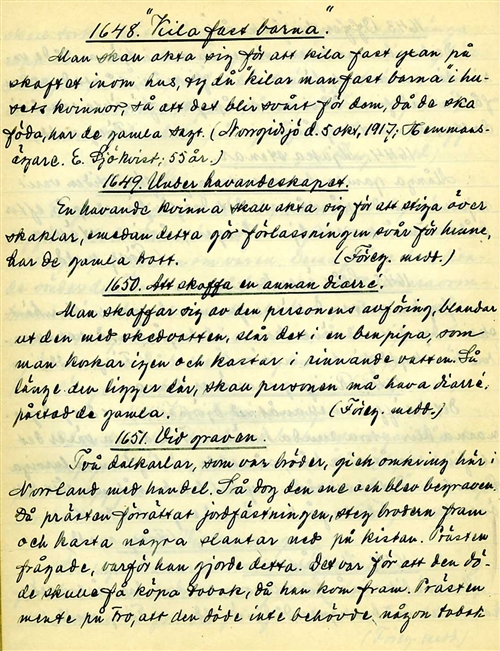 1648. "Kila fast barna".
Man skall akta sig för att kila fast yxan på
skaftet inom hus, ty då "kilar man fast barna" i hu-
sets kvinnor, så att det blir svårt för dem, då de ska
föda, har de gamla sagt. (Norrgissjö d. 5 okt. 1917, Hemmans-
ägare. E. Sjökvist, 55 år.)
1649. Under havandeskapet.
En havande kvinna skall akta sig för att stiga över
skaklar, emedan detta gör förlossningen svår för henne,
har de gamla trott. (Föreg. medd.)
1650. Att skaffa en annan diarré.
Man skaffar sig av den personens avföring, blandar
ut den med skedvatten, slår det i en benpipa, som
man korkar igen och kastar i rinnande vatten. Så
länge den ligger där, skall personen må hava diarré,
påstod de gamla. (Föreg. medd.)
1651. Vid graven.
Två dalkarlar, som var bröder, gick omkring här i
Norrland med handel. Så dog den ene och blev begraven.
Då prästen förrättat jordfästningen, steg brodern fram
och kasta några slantar ned på kistan. Prästen
frågade, varför han gjorde detta. Det var för att den dö-
de skulle få köpa tobak, då han kom fram. Prästen
mente på tro, att den döde inte behövde någon tobak
(Föreg. medd.)